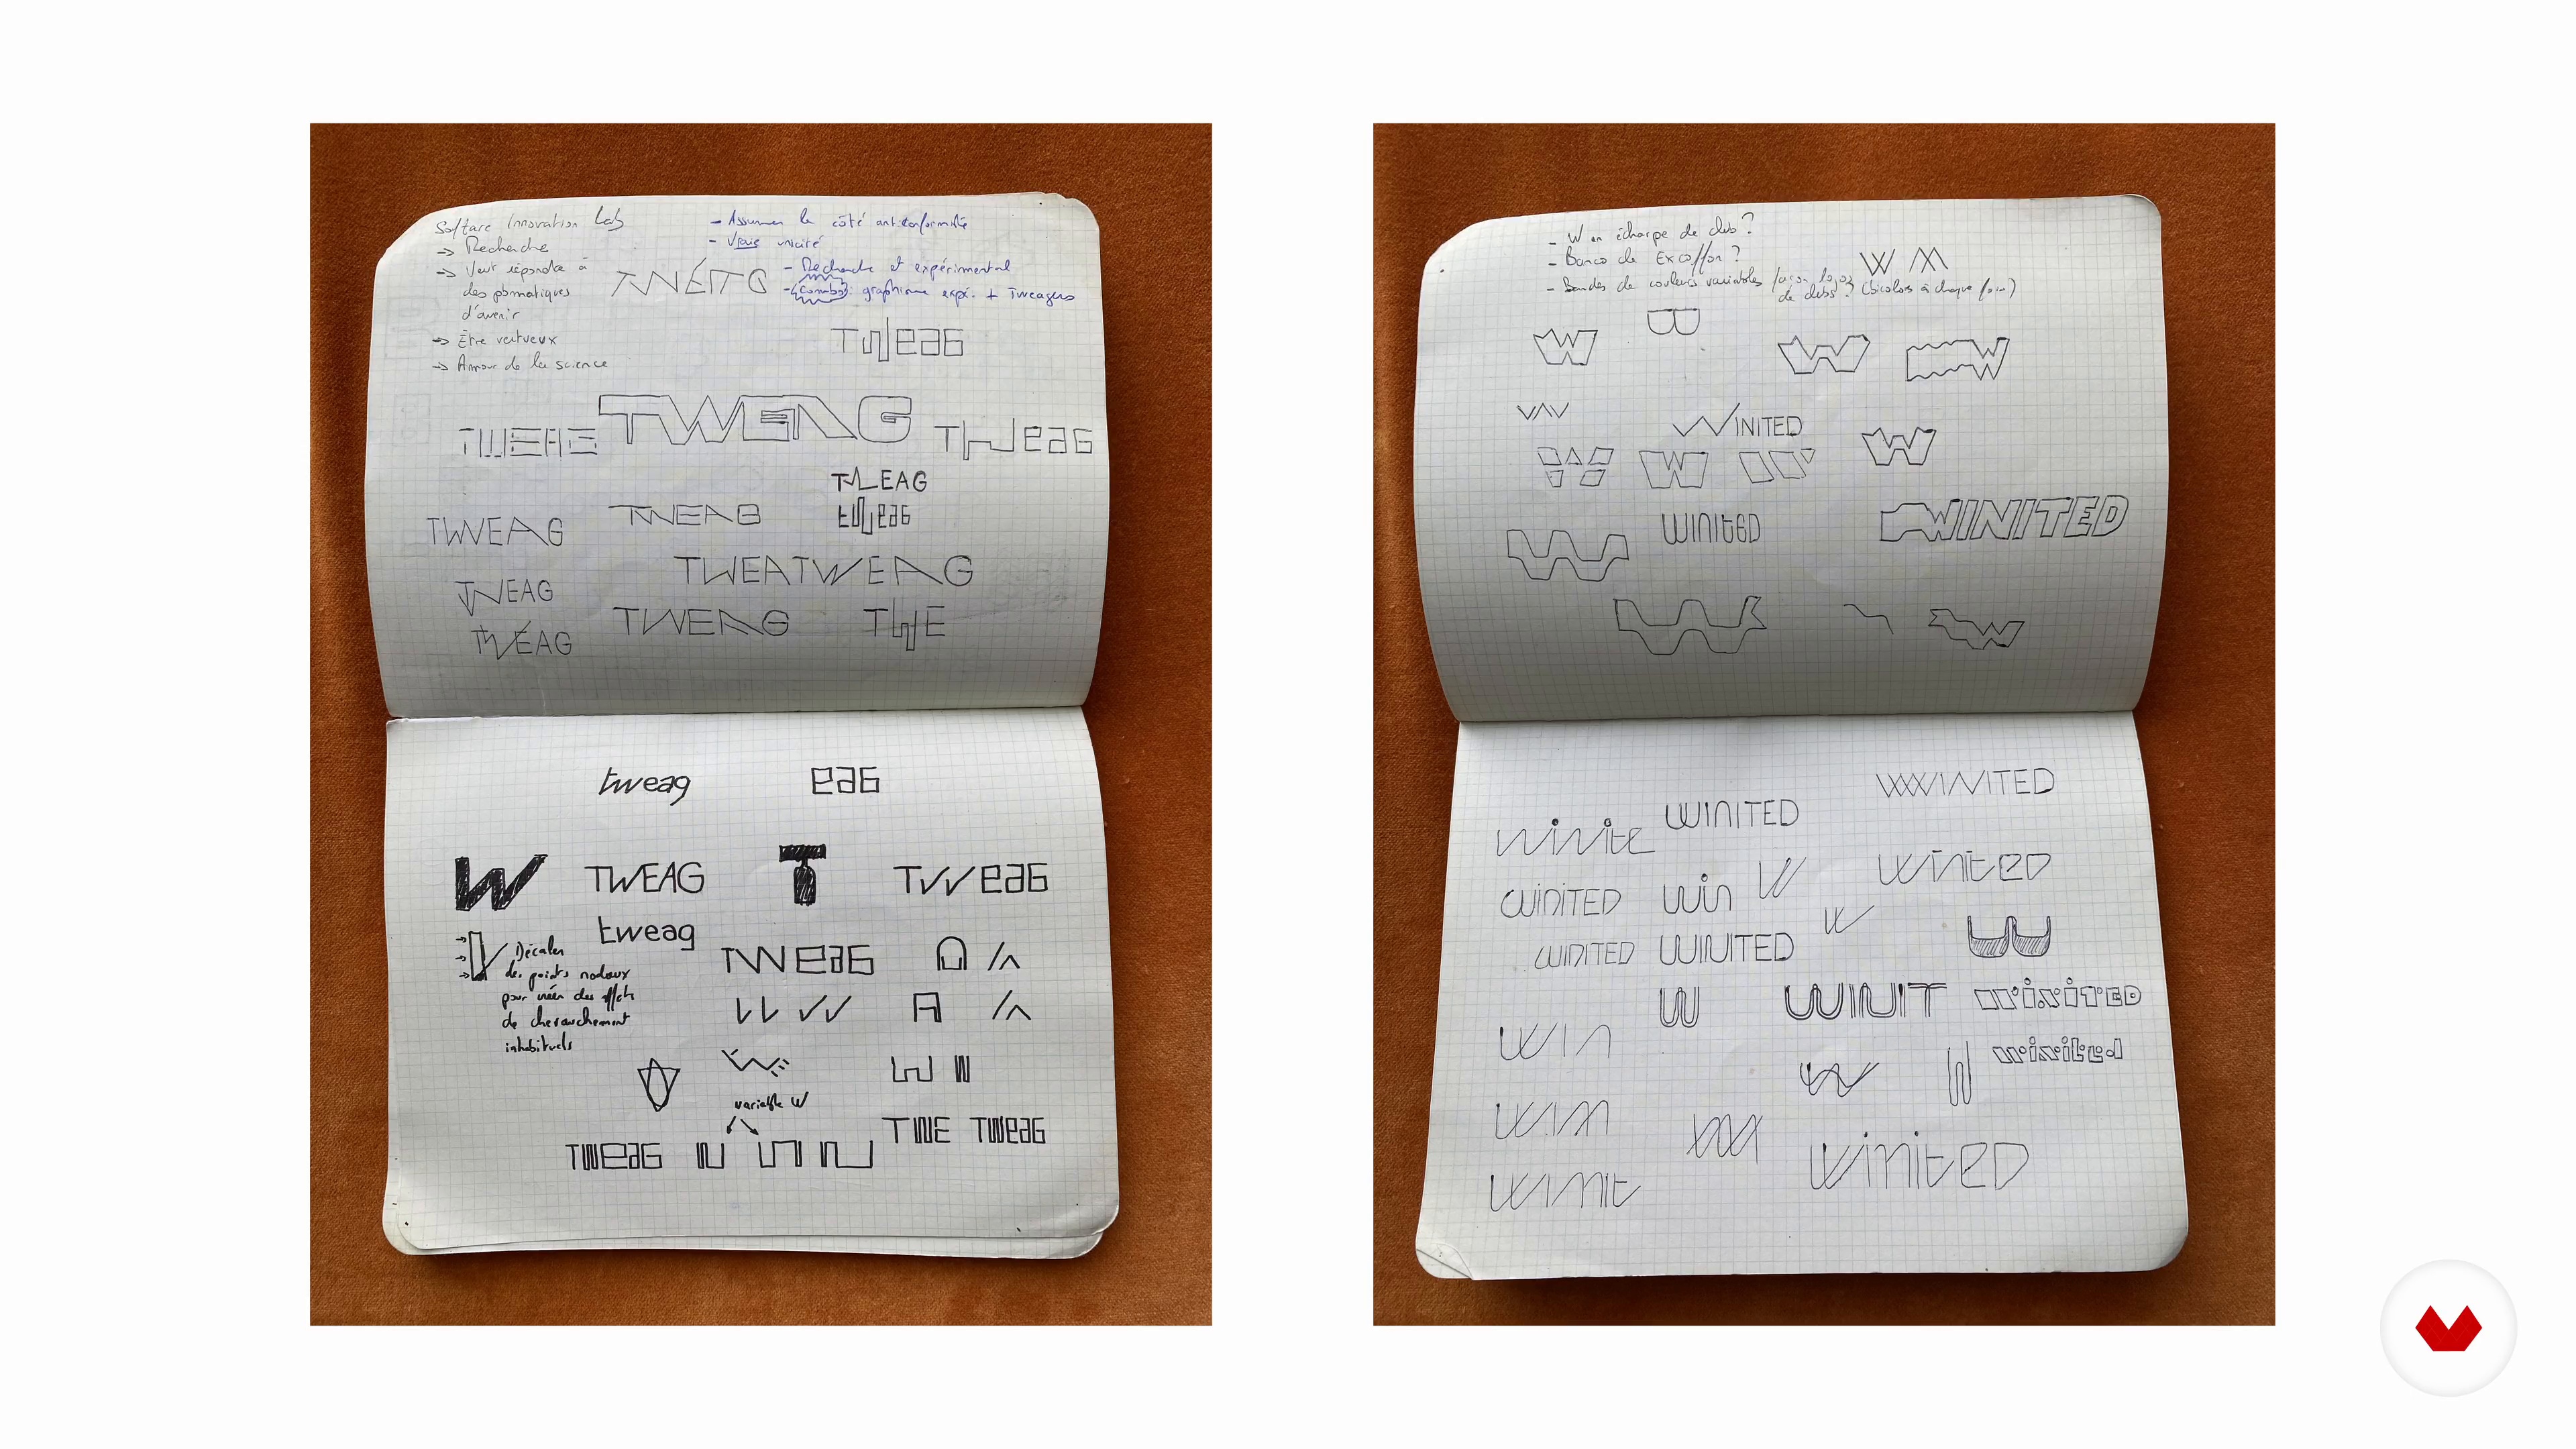 Softare Innovation Lab
-> Recherche
-> Veut répondre à
des pbmatiques
d'avenir
-> Être vertueux
-> Amour de la science
- Assumer le côté anticonformité
- Vraie unicité
- Recherche et expérimental
- (combo) graphisme expé. + Tweagers
TWEAG
Tweag
TWEAG
TWEAG
TWeag
TWEAG
tweag
TWEAG
TWEAG
TWEATWEAG
TWEAG
TWEAG
TWE
TWEAG
tweag
eag
W
TWEAG
T
TWeag
tweag
Décaler
des points nodaux
pour créer des effets
de chevauchement
inhabituels
TWeag
A
W
variable W
TWeag
TWE TWeag
- W en écharpe de club ?
- Banco de Excoffon ?
- Bandes de couleurs variables façon logos
de clubs ? (bicolors à chaque fois)
W M
W
B
W
W
WINITED
W
W
WINITED
WINITED
W
W
WWINITED
WINITED
winite
WINITED
win
W
WINITED
W
WINITED
WINITED
W
WINIT
winited
winited
WIN
W
WIN
WINIT
winited